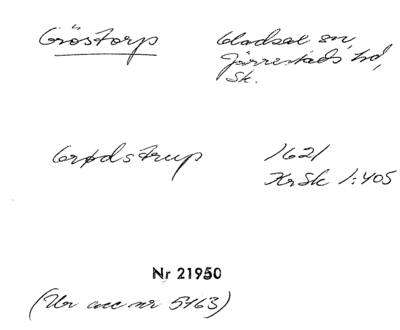 Gröstorp Gladsax sn,
Järrestads hd,
Sk.
Grødstrup 1621
KrSk 1:405
Nr 21950
(Ur acc nr 5463)